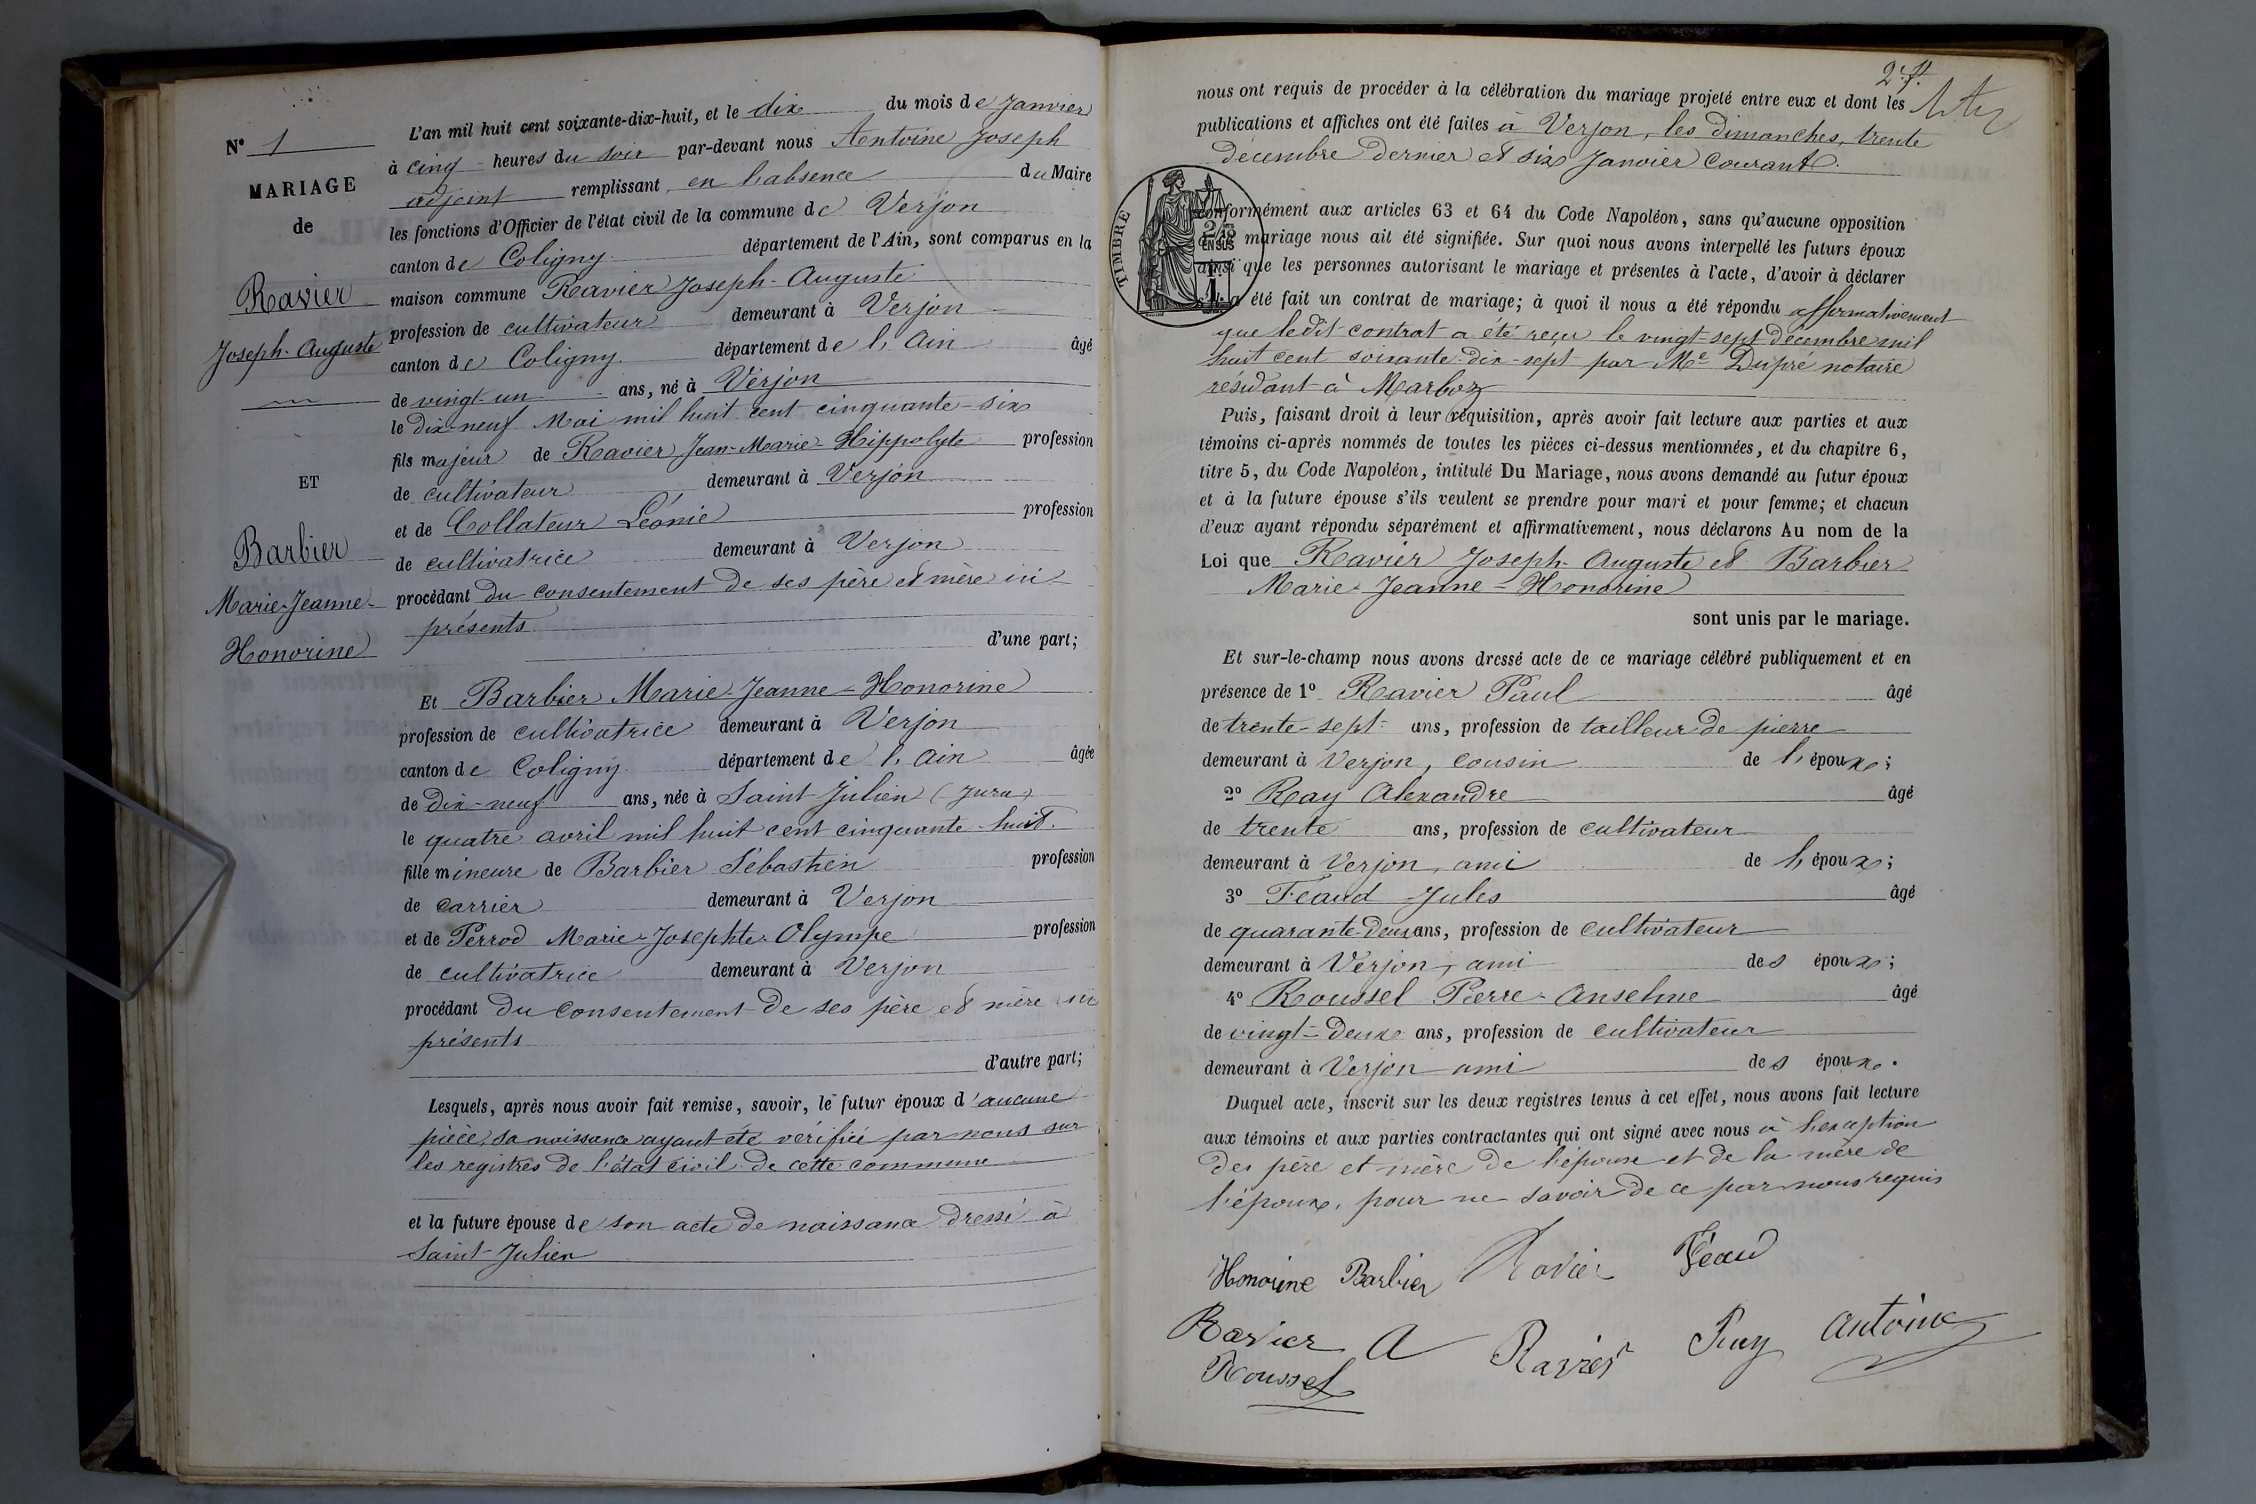 N° 1
MARIAGE
de
Ravier
Joseph-Auguste
ET
Barbier
Marie-Jeanne-
Honorine
L'an mil huit cent soixante-dix-huit, et le dix du mois de Janvier
à cinq heures du soir par-devant nous Antoine Joseph
adjoint remplissant en l'absence du Maire
les fonctions d'Officier de l'état civil de la commune de Verjon
canton de Coligny département de l'Ain, sont comparus en la
maison commune Ravier Joseph-Auguste
profession de cultivateur demeurant à Verjon
canton de Coligny département de l'Ain âgé
de vingt-un ans, né à Verjon
le dix-neuf Mai mil huit cent cinquante-six
fils majeur de Ravier Jean-Marie-Hippolyte profession
de cultivateur demeurant à Verjon
et de Collateur Léonie profession
de cultivatrice demeurant à Verjon
procédant du consentement de ses père et mère ici
présents
d'une part;
Et Barbier Marie-Jeanne-Honorine
profession de cultivatrice demeurant à Verjon
canton de Coligny département de l'Ain âgée
de dix-neuf ans, née à Saint-Julien (Jura)
le quatre avril mil huit cent cinquante-huit.
fille mineure de Barbier Sébastien profession
de carrier demeurant à Verjon
et de Perrod Marie-Josephte-Olympe profession
de cultivatrice demeurant à Verjon
procédant du consentement de ses père et mère ici
présents
d'autre part;
Lesquels, après nous avoir fait remise, savoir, le futur époux d'aucune
pièce, sa naissance ayant été vérifiée par nous sur
les registres de l'état civil de cette commune
et la future épouse de son acte de naissance dressé à
Saint-Julien
2 f.
nous ont requis de procéder à la célébration du mariage projeté entre eux et dont les
publications et affiches ont été faites à Verjon, les dimanches, trente
décembre dernier et six Janvier courant.
TIMBRE
2/3
EN SUS
1 f.
conformément aux articles 63 et 64 du Code Napoléon, sans qu'aucune opposition
mariage nous ait été signifiée. Sur quoi nous avons interpellé les futurs époux
ainsi que les personnes autorisant le mariage et présentes à l'acte, d'avoir à déclarer
a été fait un contrat de mariage; à quoi il nous a été répondu affirmativement
que ledit contrat a été reçu le vingt-sept décembre mil
huit cent soixante-dix-sept par Me Dupré notaire
résidant à Marboz
Puis, faisant droit à leur réquisition, après avoir fait lecture aux parties et aux
témoins ci-après nommés de toutes les pièces ci-dessus mentionnées, et du chapitre 6,
titre 5, du Code Napoléon, intitulé Du Mariage, nous avons demandé au futur époux
et à la future épouse s'ils veulent se prendre pour mari et pour femme; et chacun
d'eux ayant répondu séparément et affirmativement, nous déclarons Au nom de la
Loi que Ravier Joseph-Auguste et Barbier
Marie-Jeanne-Honorine
sont unis par le mariage.
Et sur-le-champ nous avons dressé acte de ce mariage célébré publiquement et en
présence de 1° Ravier Paul âgé
de trente-sept ans, profession de tailleur de pierre
demeurant à Verjon, cousin de l'époux;
2° Ray Alexandre âgé
de trente ans, profession de cultivateur
demeurant à Verjon, ami de l'époux;
3° Féaud Jules âgé
de quarante-deux ans, profession de cultivateur
demeurant à Verjon, ami des époux;
4° Roussel Pierre-Anselme âgé
de vingt-deux ans, profession de cultivateur
demeurant à Verjon ami des époux.
Duquel acte, inscrit sur les deux registres tenus à cet effet, nous avons fait lecture
aux témoins et aux parties contractantes qui ont signé avec nous à l'exception
des père et mère de l'épouse et de la mère de
l'époux, pour ne savoir de ce par nous requis
Honorine Barbier Ravier Féaud
Ravier A Ravier Ray Antoine
Roussel